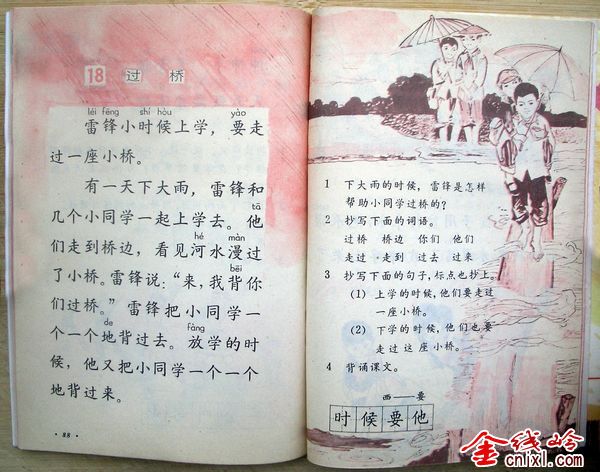 18 过桥
léi fēng shí hòu yào
雷锋小时候上学，要走
过一座小桥。
有一天下大雨，雷锋和
几个小同学一起上学去。他
tā
们走到桥边，看见河水漫过
hé màn
了小桥。雷锋说：“来，我背你
bēi
们过桥。”雷锋把小同学一
个一个地背过去。放学的时
de fàng
候，他又把小同学一个一个
地背过来。
·88·
1 下大雨的时候，雷锋是怎样
帮助小同学过桥的？
2 抄写下面的词语。
过桥 桥边 你们 他们
走过 走到 过去 过来
3 抄写下面的句子，标点也抄上。
(1) 上学的时候，他们要走过
一座小桥。
(2) 下学的时候，他们也要
走过这座小桥。
4 背诵课文。
西——要
时候要他
金线岭
cnlxl.com